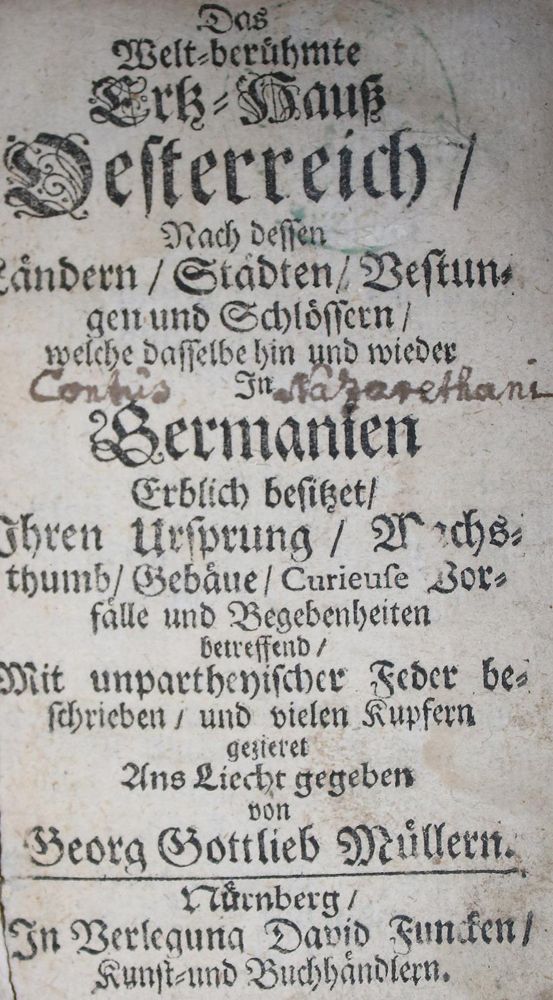 Das
Welt-berühmte
Ertz-Hauß
Oesterreich /
Nach dessen
Ländern / Städten / Vestun-
gen und Schlössern /
welche dasselbe hin und wieder
In
Germanien
Erblich besitzet /
Ihren Ursprung / Wachs-
thumb / Gebäue / Curieuse Vor-
fälle und Begebenheiten
betreffend /
Mit unpartheyischer Feder be-
schrieben / und vielen Kupfern
gezieret
Ans Liecht gegeben
von
Georg Gottlieb Müllern.
Nürnberg /
In Verlegung David Funcken /
Kunst- und Buchhändlern.